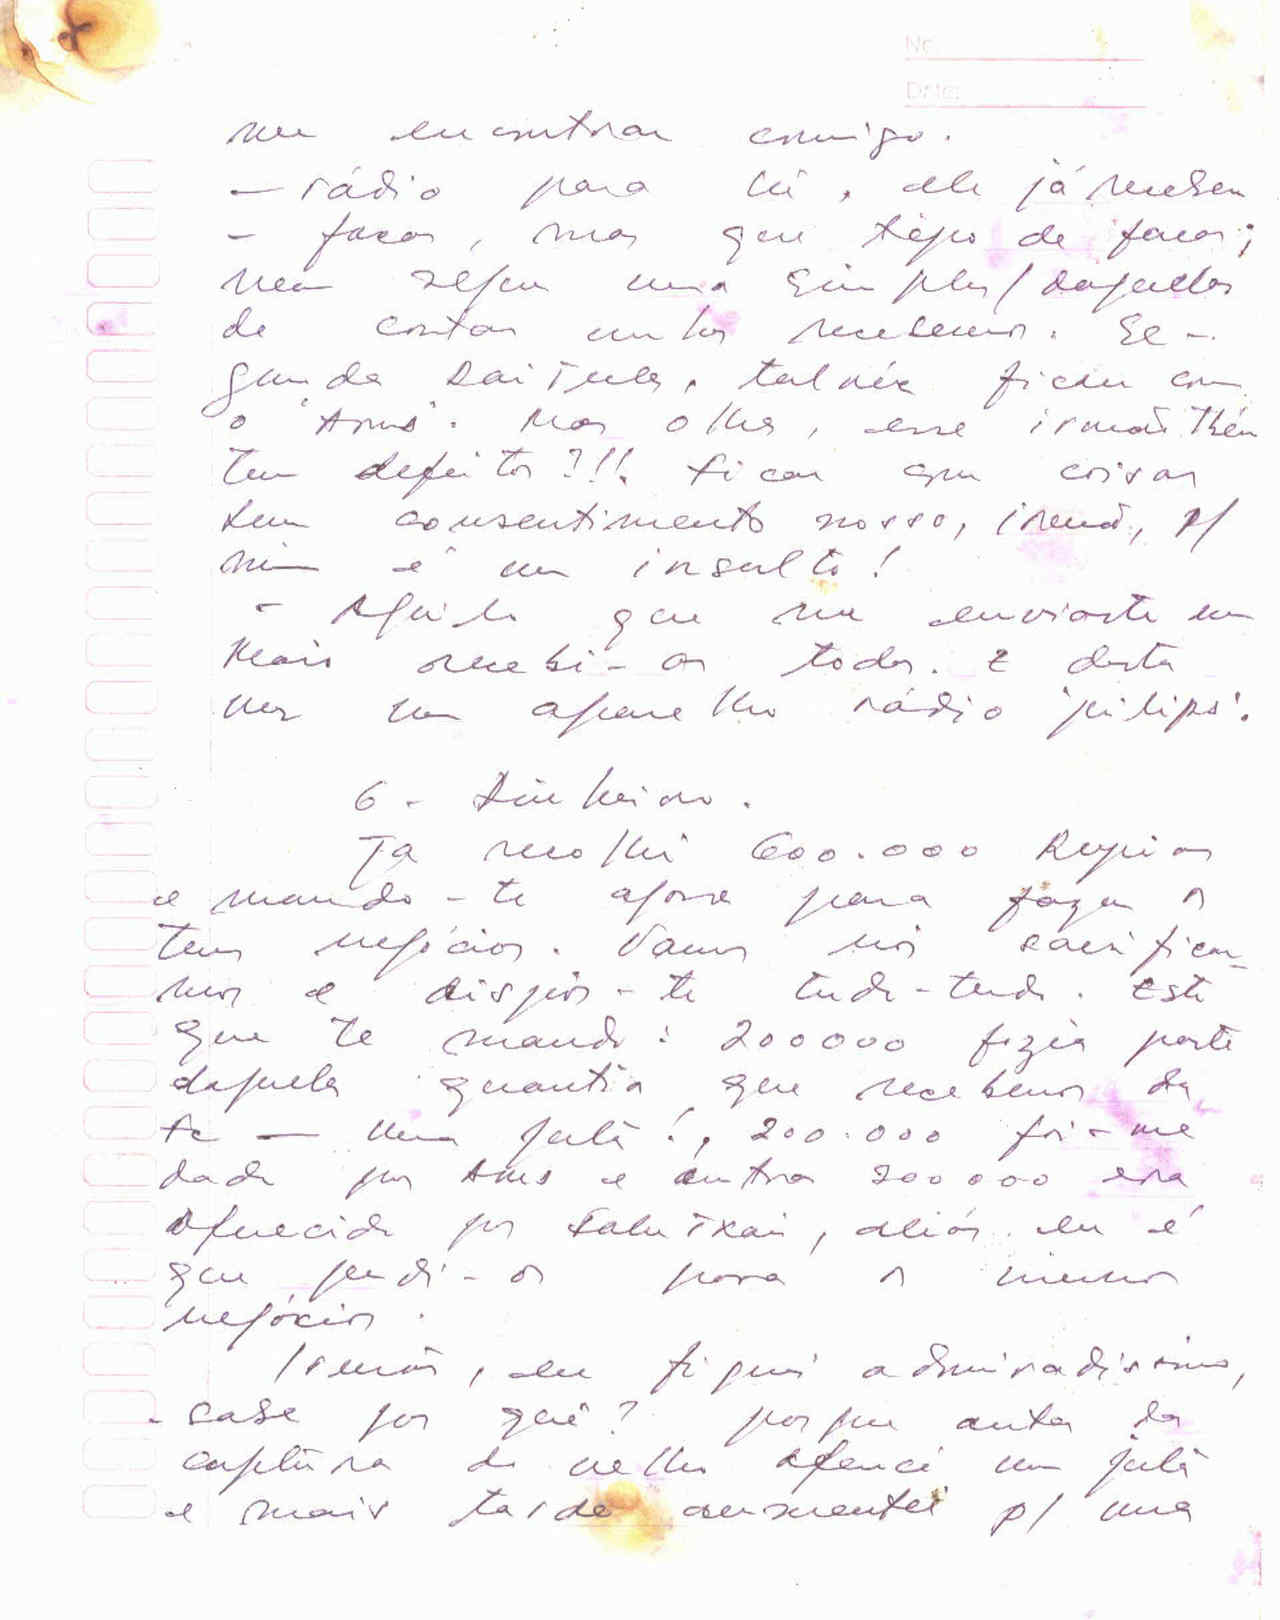 No:
Date:
me encontrar comigo.
– rádio para lá, ele já recebeu
– facas, mas que tipo de facas;
nem sequer uma simples / daquelas
de contar antes recebemos. Se-
gunda Sai Tula, talvéz ficou com
o "Amo". Mas olha, esse irmão tbém
tem defeitos?!!. ficar com coisas
sem consentimento nosso, irmão, p/
mim é um insulto!
– Aquilo que me enviaste em
Maio recebi-os todos. E desta
vez um aparelho rádio 'pilips'.
6 – Dinheiro.
Já recolhi 600.000 Rupias
e mando-te agora para fazer os
teus negócios. Vamos nós sacrificar-
nos e dispôr-te tudo-tudo. Este
que te mando: 200000 fazia parte
daquela quantia que recebemos da
– um jutá!, 200.000 foi-me
dado por Amo e outros 200000 era
oferecido por Saluntxai, aliás eu é
que pedi-os para os meus
negócios.
Irmão, eu fiquei admiradíssimo,
sabe por quê? porque antes da
captura do velho ofereci um jutá
e mais tarde aumentei p/ uma